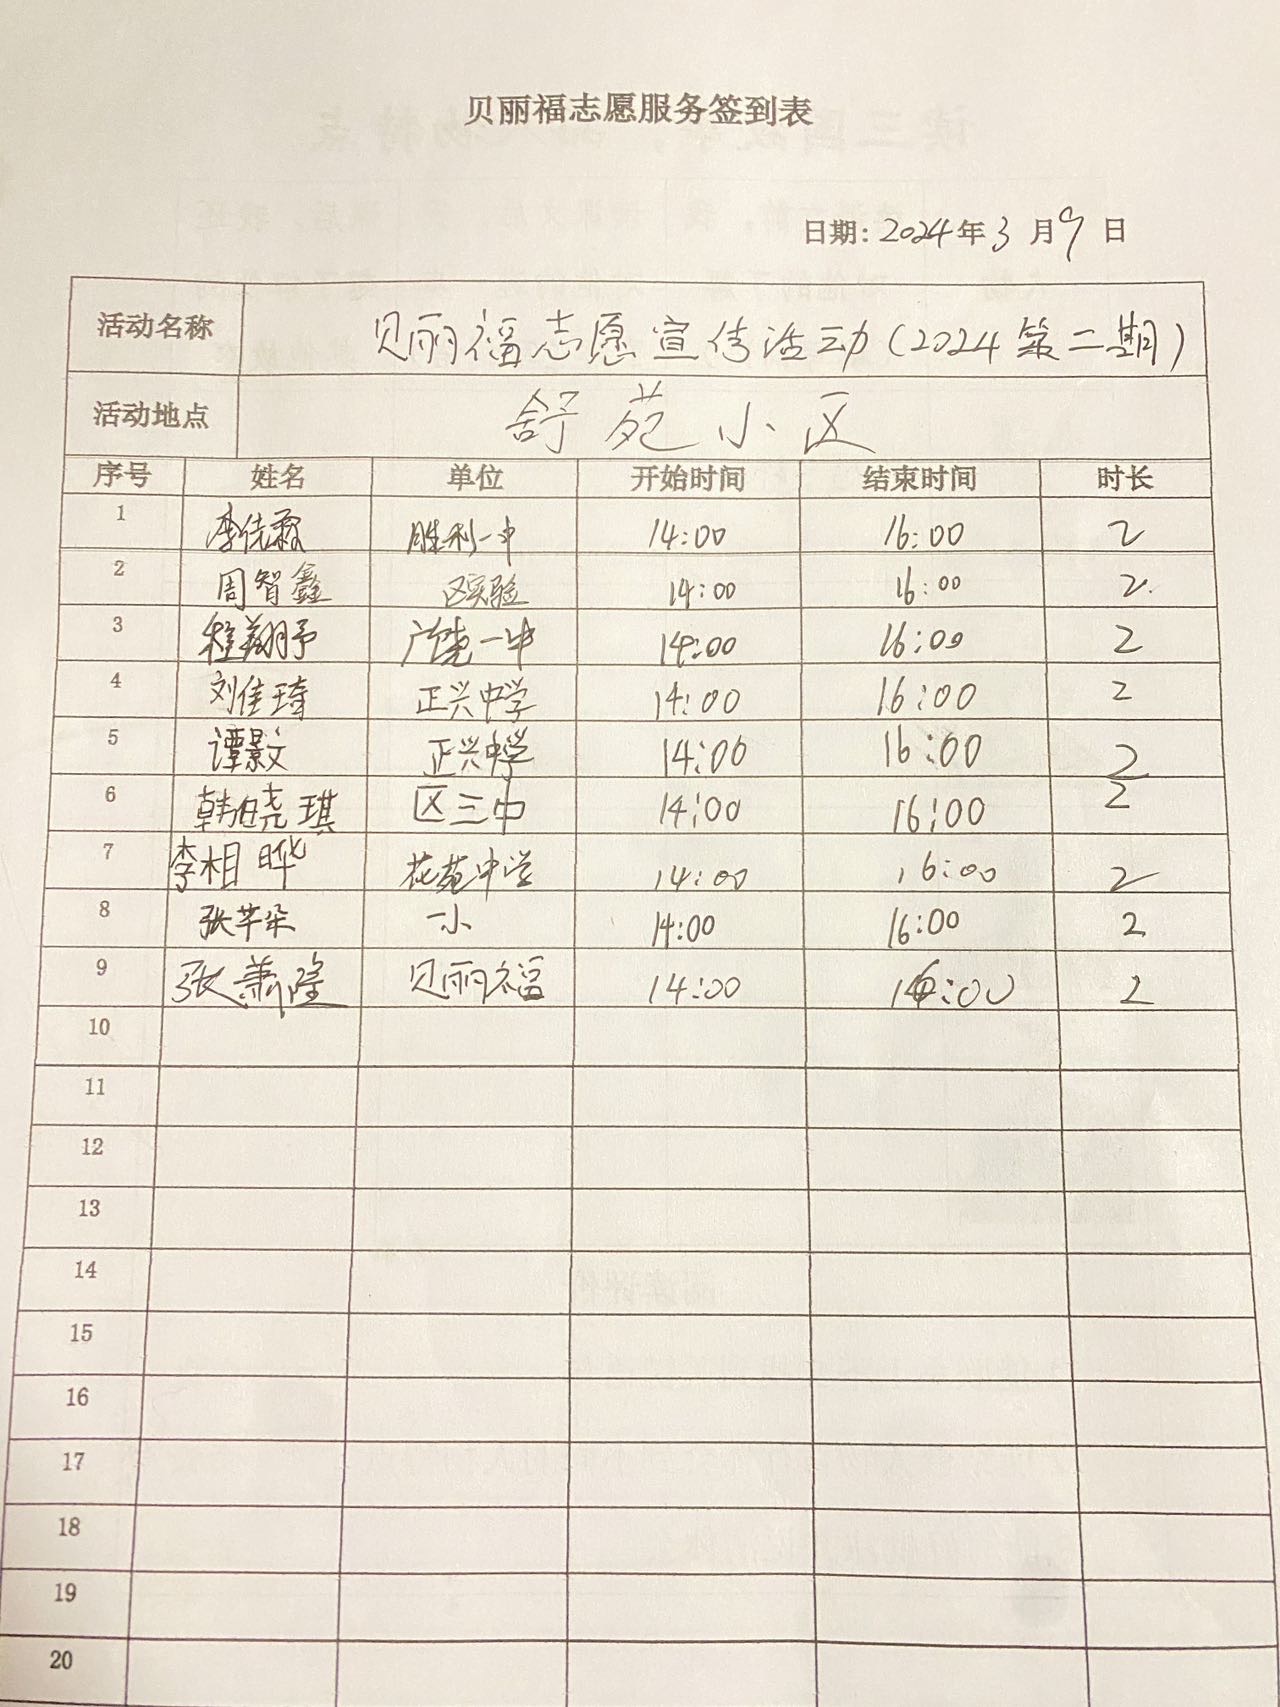 贝丽福志愿服务签到表
日期: 2024年3月9日
活动名称 贝丽福志愿宣传活动(2024第二期)
活动地点 舒苑小区
序号 姓名 单位 开始时间 结束时间 时长
1 李佳霖 胜利一中 14:00 16:00 2
2 周智鑫 区实验 14:00 16:00 2.
3 程翔予 广饶一中 14:00 16:00 2
4 刘佳琦 正兴中学 14:00 16:00 2
5 谭景文 正兴中学 14:00 16:00 2
6 韩晓琪 区三中 14:00 16:00 2
7 李相晔 花苑中学 14:00 16:00 2
8 张芊朵 一小 14:00 16:00 2
9 张萧隆 贝丽福 14:00 16:00 2
10
11
12
13
14
15
16
17
18
19
20